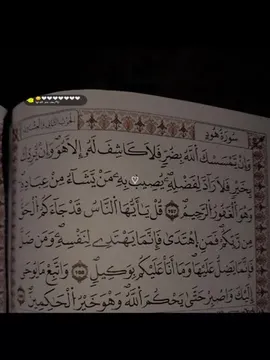 سُورَةُ هُودٍ
وَإِن يَمْسَسْكَ ٱللَّهُ بِضُرٍّ فَلَا كَاشِفَ لَهُۥٓ إِلَّا هُوَۖ وَإِن يُرِدْكَ
بِخَيْرٍ فَلَا رَآدَّ لِفَضْلِهِۦۚ يُصِيبُ بِهِۦ مَن يَشَآءُ مِنْ عِبَادِهِۦۚ
وَهُوَ ٱلْغَفُورُ ٱلرَّحِيمُ ١٠٧ قُلْ يَٰٓأَيُّهَا ٱلنَّاسُ قَدْ جَآءَكُمُ ٱلْحَقُّ
مِن رَّبِّكُمْۖ فَمَنِ ٱهْتَدَىٰ فَإِنَّمَا يَهْتَدِى لِنَفْسِهِۦۖ وَمَن ضَلَّ
فَإِنَّمَا يَضِلُّ عَلَيْهَاۖ وَمَآ أَنَا۠ عَلَيْكُم بِوَكِيلٍ ١٠٨ وَٱتَّبِعْ مَا يُوحَىٰٓ
إِلَيْكَ وَٱصْبِرْ حَتَّىٰ يَحْكُمَ ٱللَّهُۚ وَهُوَ خَيْرُ ٱلْحَٰكِمِينَ